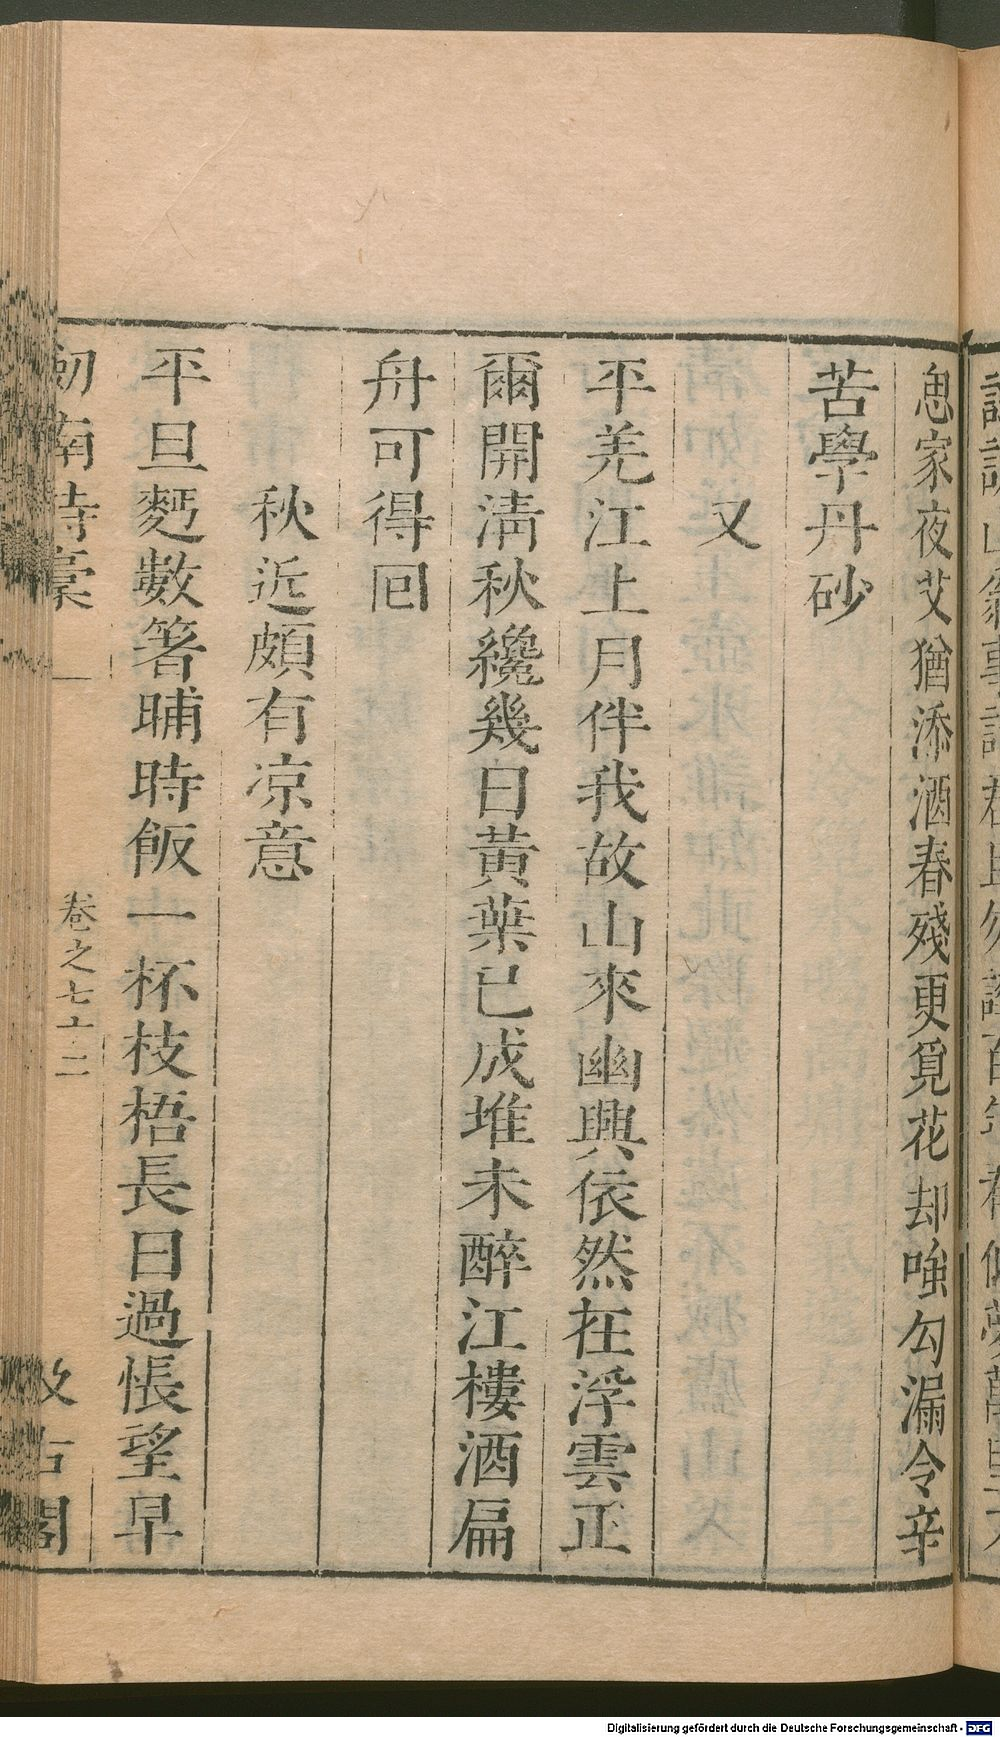 恖家夜艾猶添酒春殘更覓花却嗤勾漏令辛
苦學丹砂
又
平羌江上月伴我故山來幽興依然在浮雲正
爾開淸秋纔幾日黃葉已成堆未醉江樓酒扁
舟可得回
秋近頗有凉意
平旦麪數箸晡時飯一杯枝梧長日過悵望早
劍南詩稾
卷之七十二
汲古閣
Digitalisierung gefördert durch die Deutsche Forschungsgemeinschaft - DFG